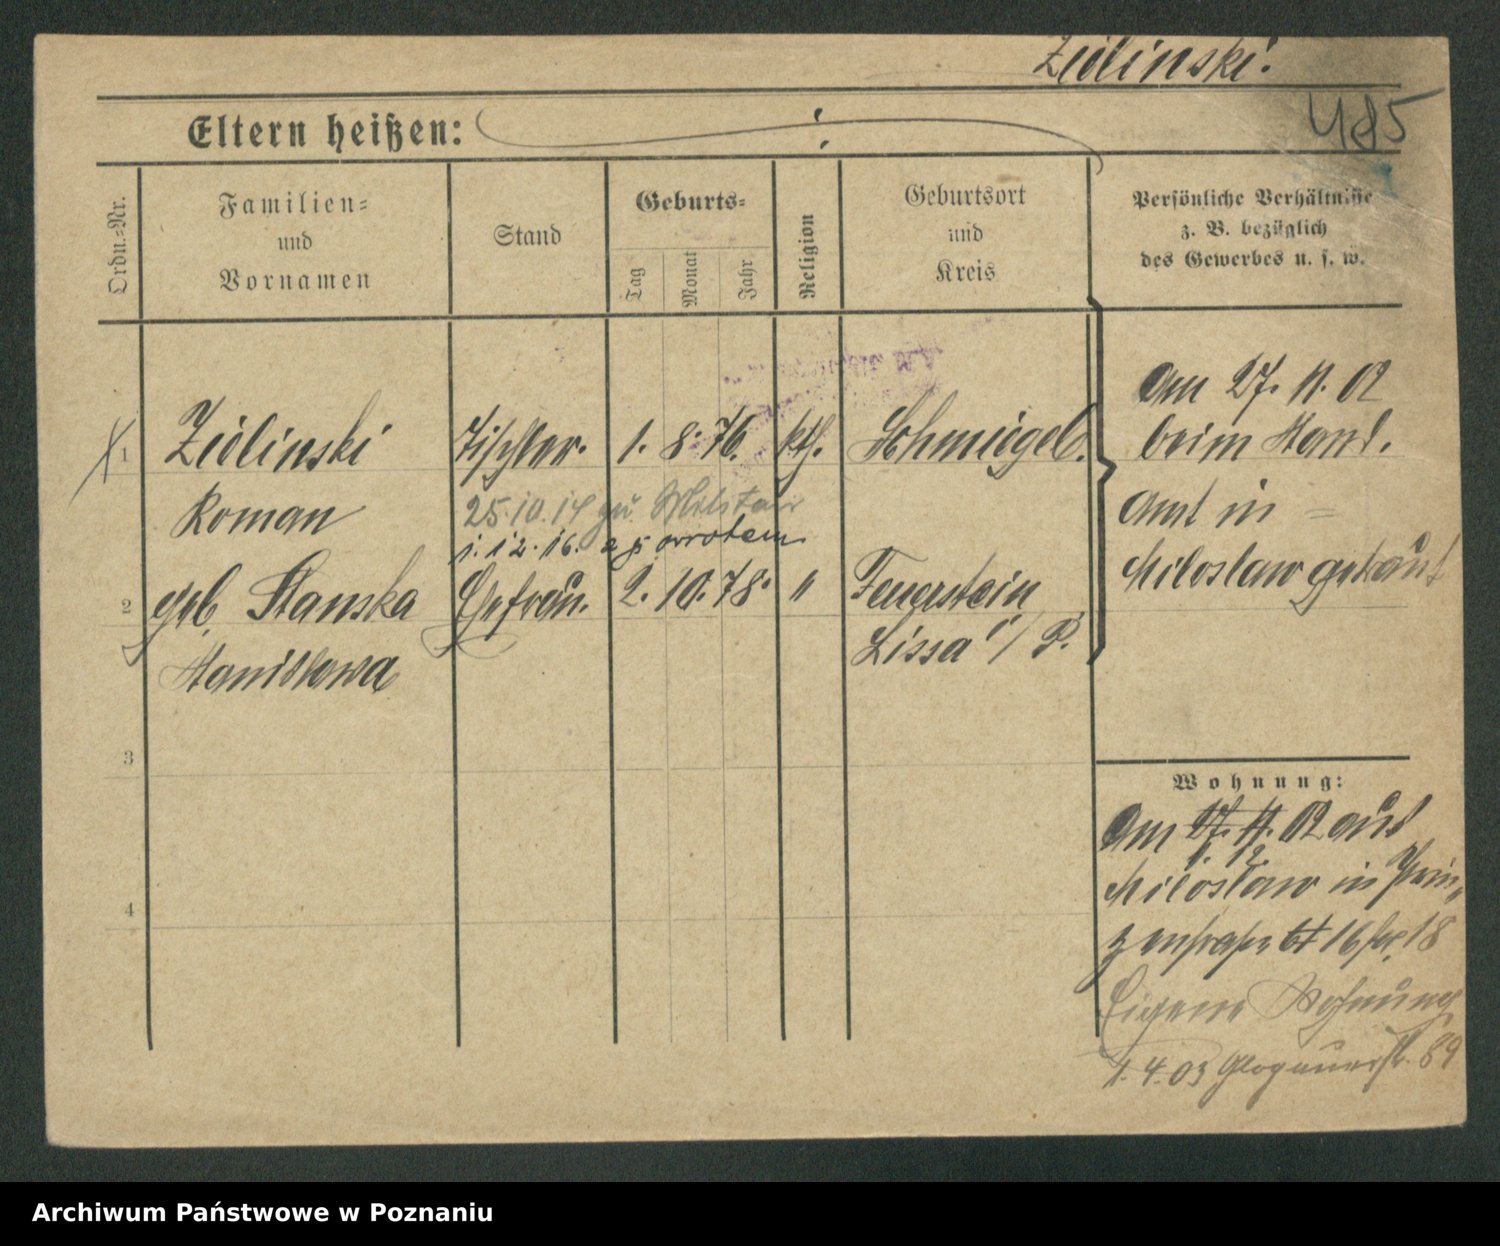 Ziolinski.
485
Eltern heißen:
Ordn.=Nr.
Familien=
und
Vornamen
Stand
Geburts=
Tag
Monat
Jahr
Religion
Geburtsort
und
Kreis
Persönliche Verhältnisse
z. B. bezüglich
des Gewerbes u. s. w.
1
Ziolinski
Tischler.
1. 8. 76.
kth.
Schmiegel.
Roman
25.10.14 zu Militair
1. 12. 16.
2
geb Stanska
Ehefrau.
2. 10. 78.
"
Feuerstein
Lissa i/P.
Stanislawa
am 27. 11. 02
beim Stand.
Amt in =
Miloslaw getraut
3
4
Wohnung:
Am 27. 11. 02 aus
1. 12.
Miloslaw in Prin„
zenstraße 16 18
Eigene Wohnung
1. 4. 03 Glogauerstr. 89
Archiwum Państwowe w Poznaniu